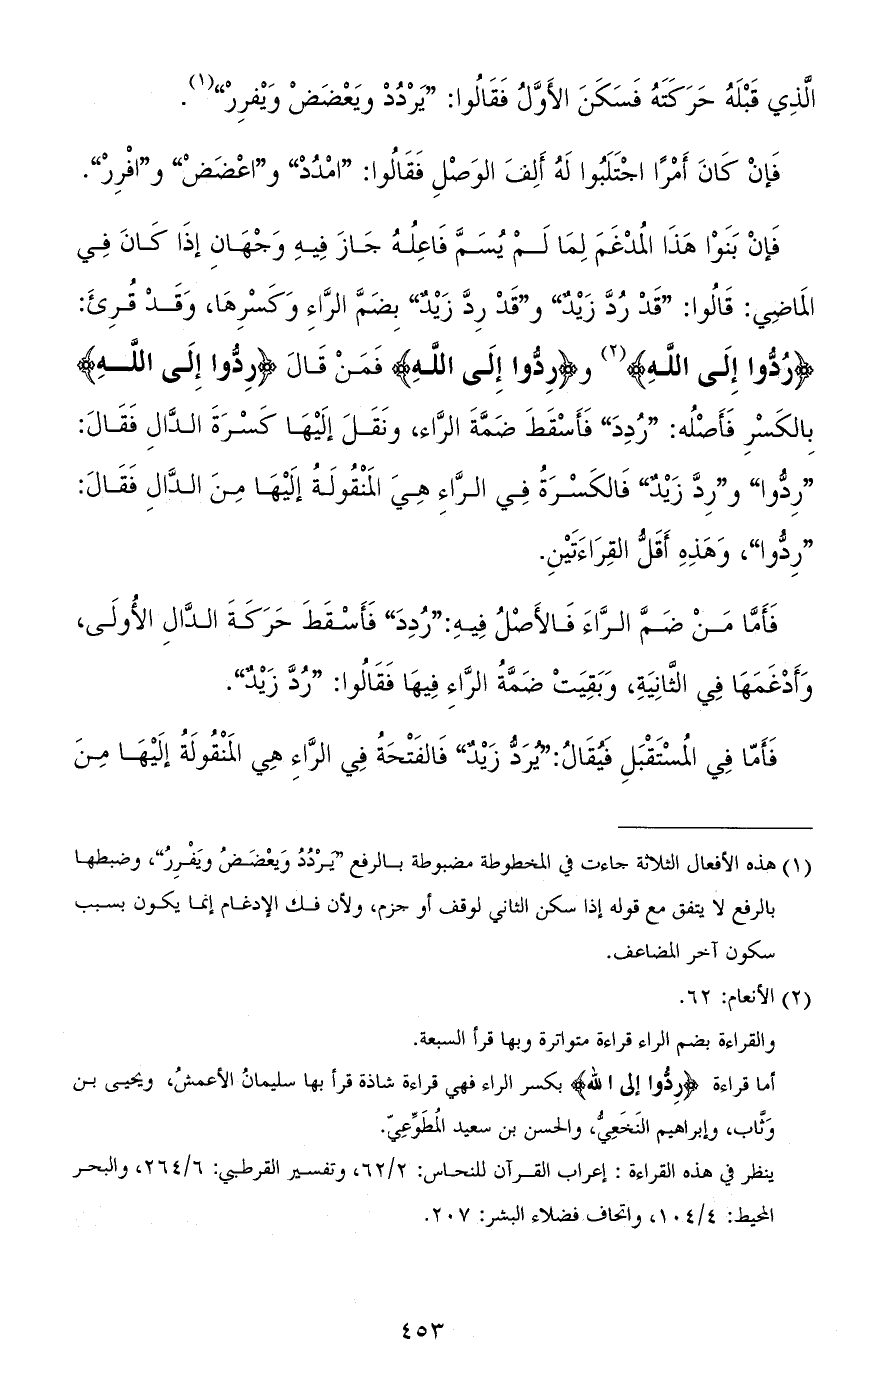 الَّذِي قَبْلَهُ حَرَكَتَهُ فَسَكَنَ الأَوَّلُ فَقَالُوا: ”يَرْدُدْ ويَعْضَضْ ويَفْرِرْ“(١).
فَإِنْ كَانَ أَمْرًا اجْتَلَبُوا لَهُ أَلِفَ الوَصْلِ فَقَالُوا: ”امْدُدْ“ و”اعْضَضْ“ و”افْرِرْ“.
فَإِنْ بَنَوْا هَذَا المُدْغَمَ لِمَا لَمْ يُسَمَّ فَاعِلُهُ جَازَ فِيهِ وَجْهَانِ إِذَا كَانَ فِي
المَاضِي: قَالُوا: ”قَدْ رُدَّ زَيْدٌ“ و”قَدْ رِدَّ زَيْدٌ“ بِضَمِّ الرَّاءِ وَكَسْرِهَا، وَقَدْ قُرِئَ:
﴿رُدُّوا إِلَى اللَّهِ﴾(٢) و﴿رِدُّوا إِلَى اللَّهِ﴾ فَمَنْ قَالَ ﴿رِدُّوا إِلَى اللَّهِ﴾
بِالكَسْرِ فَأَصْلُه: ”رُدِدَ“ فَأَسْقَطَ ضَمَّةَ الرَّاء، ونَقَلَ إِلَيْهَا كَسْرَةَ الدَّالِ فَقَالَ:
”رِدُّوا“ و”رِدَّ زَيْدٌ“ فَالكَسْرَةُ فِي الرَّاءِ هِيَ المَنْقُولَةُ إِلَيْهَا مِنَ الدَّالِ فَقَالَ:
”رِدُّوا“، وَهَذِهِ أَقَلُّ القِرَاءَتَيْنِ.
فَأَمَّا مَنْ ضَمَّ الرَّاءَ فَالأَصْلُ فِيهِ:”رُدِدَ“ فَأَسْقَطَ حَرَكَةَ الدَّالِ الأُولَى،
وَأَدْغَمَهَا فِي الثَّانِيَةِ، وَبَقِيَتْ ضَمَّةُ الرَّاءِ فِيهَا فَقَالُوا: ”رُدَّ زَيْدٌ“.
فَأَمَّا فِي المُسْتَقْبَلِ فَيُقَالُ:”يُرَدُّ زَيْدٌ“ فَالفَتْحَةُ فِي الرَّاءِ هِي المَنْقُولَةُ إِلَيْهَا مِنَ
(١) هذه الأفعال الثلاثة جاءت في المخطوطة مضبوطة بالرفع ”يَرْدُدُ وَيَعْضَضُ ويَفْرِرُ“، وضبطها
بالرفع لا يتفق مع قوله إذا سكن الثاني لوقف أو جزم، ولأن فك الإدغام إنما يكون بسبب
سكون آخر المضاعف.
(٢) الأنعام: ٦٢.
والقراءة بضم الراء قراءة متواترة وبها قرأ السبعة.
أما قراءة ﴿رِدُّوا إلى الله﴾ بكسر الراء فهي قراءة شاذة قرأ بها سليمانُ الأعمشُ، ويحيى بن
وَثَّاب، وإبراهيم النَخَعِيُّ، والحسن بن سعيد المُطَوِّعِيّ.
ينظر في هذه القراءة : إعراب القرآن للنحاس: ٦٢/٢، وتفسير القرطبي: ٢٦٤/٦، والبحر
المحيط: ١٠٤/٤، واتحاف فضلاء البشر: ٢٠٧.
٤٥٣